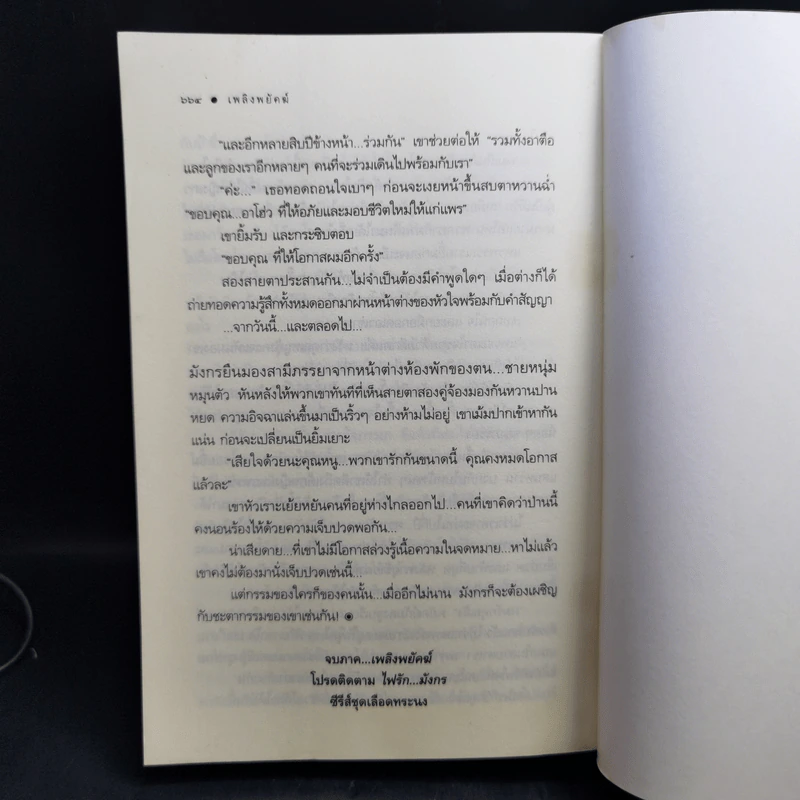 ๖๖๔ ● เพลิงพยัคฆ์
“และอีกหลายสิบปีข้างหน้า...ร่วมกัน” เขาช่วยต่อให้ “รวมทั้งอาตือ
และลูกของเราอีกหลายๆ คนที่จะร่วมเดินไปพร้อมกับเรา”
“ค่ะ...” เธอทอดถอนใจเบาๆ ก่อนจะเงยหน้าขึ้นสบตาหวานฉ่ำ
“ขอบคุณ...อาโฮ่ว ที่ให้อภัยและมอบชีวิตใหม่ให้แก่แพร”
เขายิ้มรับ และกระซิบตอบ
“ขอบคุณ ที่ให้โอกาสผมอีกครั้ง”
สองสายตาประสานกัน...ไม่จำเป็นต้องมีคำพูดใดๆ เมื่อต่างก็ได้
ถ่ายทอดความรู้สึกทั้งหมดออกมาผ่านหน้าต่างของหัวใจพร้อมกับคำสัญญา
...จากวันนี้...และตลอดไป...
มังกรยืนมองสามีภรรยาจากหน้าต่างห้องพักของตน...ชายหนุ่ม
หมุนตัว หันหลังให้พวกเขาทันทีที่เห็นสายตาสองคู่จ้องมองกันหวานปาน
หยด ความอิจฉาแล่นขึ้นมาเป็นริ้วๆ อย่างห้ามไม่อยู่ เขาเม้มปากเข้าหากัน
แน่น ก่อนจะเปลี่ยนเป็นยิ้มเยาะ
“เสียใจด้วยนะคุณหนู...พวกเขารักกันขนาดนี้ คุณคงหมดโอกาส
แล้วละ”
เขาหัวเราะเย้ยหยันคนที่อยู่ห่างไกลออกไป...คนที่เขาคิดว่าป่านนี้
คงนอนร้องไห้ด้วยความเจ็บปวดพอกัน...
น่าเสียดาย...ที่เขาไม่มีโอกาสล่วงรู้เนื้อความในจดหมาย...หาไม่แล้ว
เขาคงไม่ต้องมานั่งเจ็บปวดเช่นนี้...
แต่กรรมของใครก็ของคนนั้น...เมื่ออีกไม่นาน มังกรก็จะต้องเผชิญ
กับชะตากรรมของเขาเช่นกัน!
จบภาค...เพลิงพยัคฆ์
โปรดติดตาม ไฟรัก...มังกร
ซีรีส์ชุดเลือดทระนง